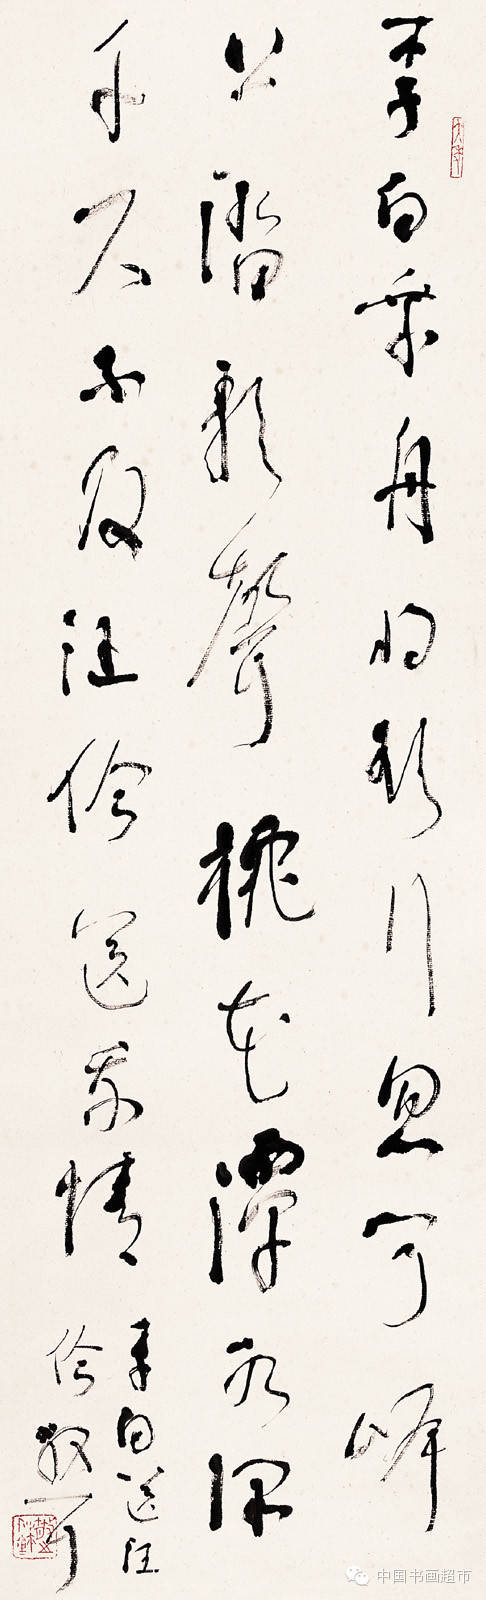 李白乘舟將欲行忽聞岸
上踏歌聲桃花潭水深
千尺不及汪倫送我情
李白送汪
倫散耳
中国书画超市